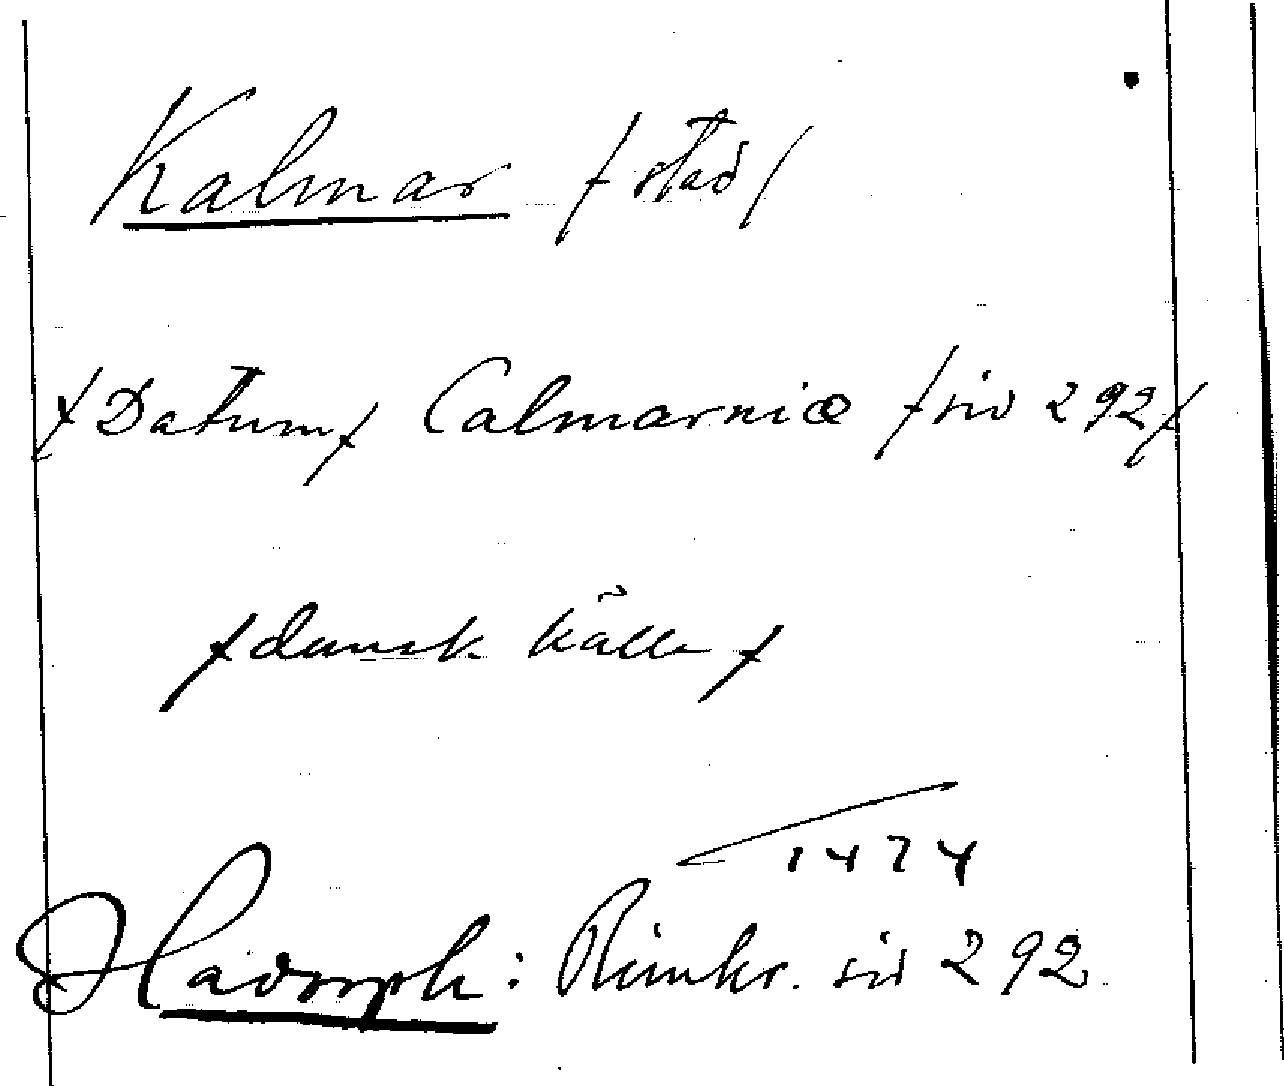 Kalmar /stad/
/Datum/ Calmarniæ /sid 292/
/dansk källa/
1474
Hadorph: Rimkr. sid 292